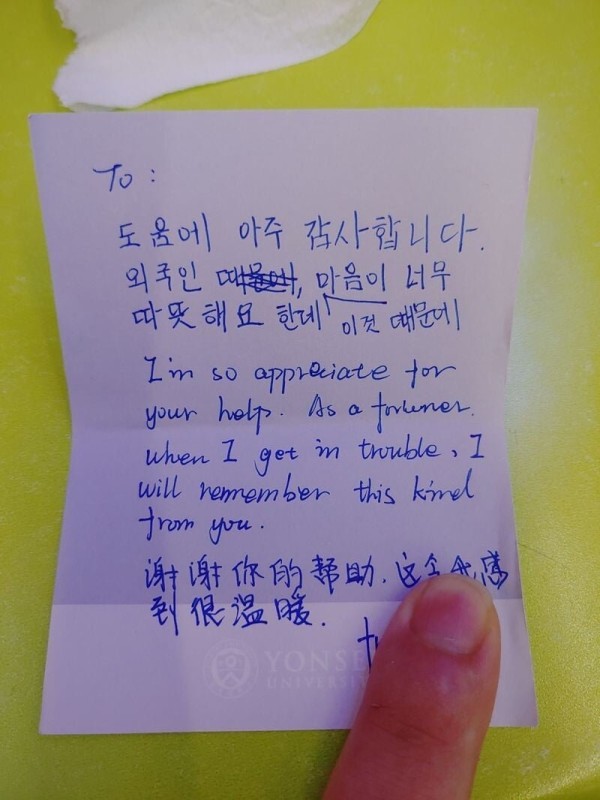 To :
도움에 아주 감사합니다.
외국인 , 마음이 너무
따뜻해요 한데 이것 때문에
I'm so appreciate for
your help. As a foruner.
when I get in trouble, I
will remember this kind
from you.
谢谢你的帮助. 这令我感
到很温暖.
YONSE
UNIVERSI